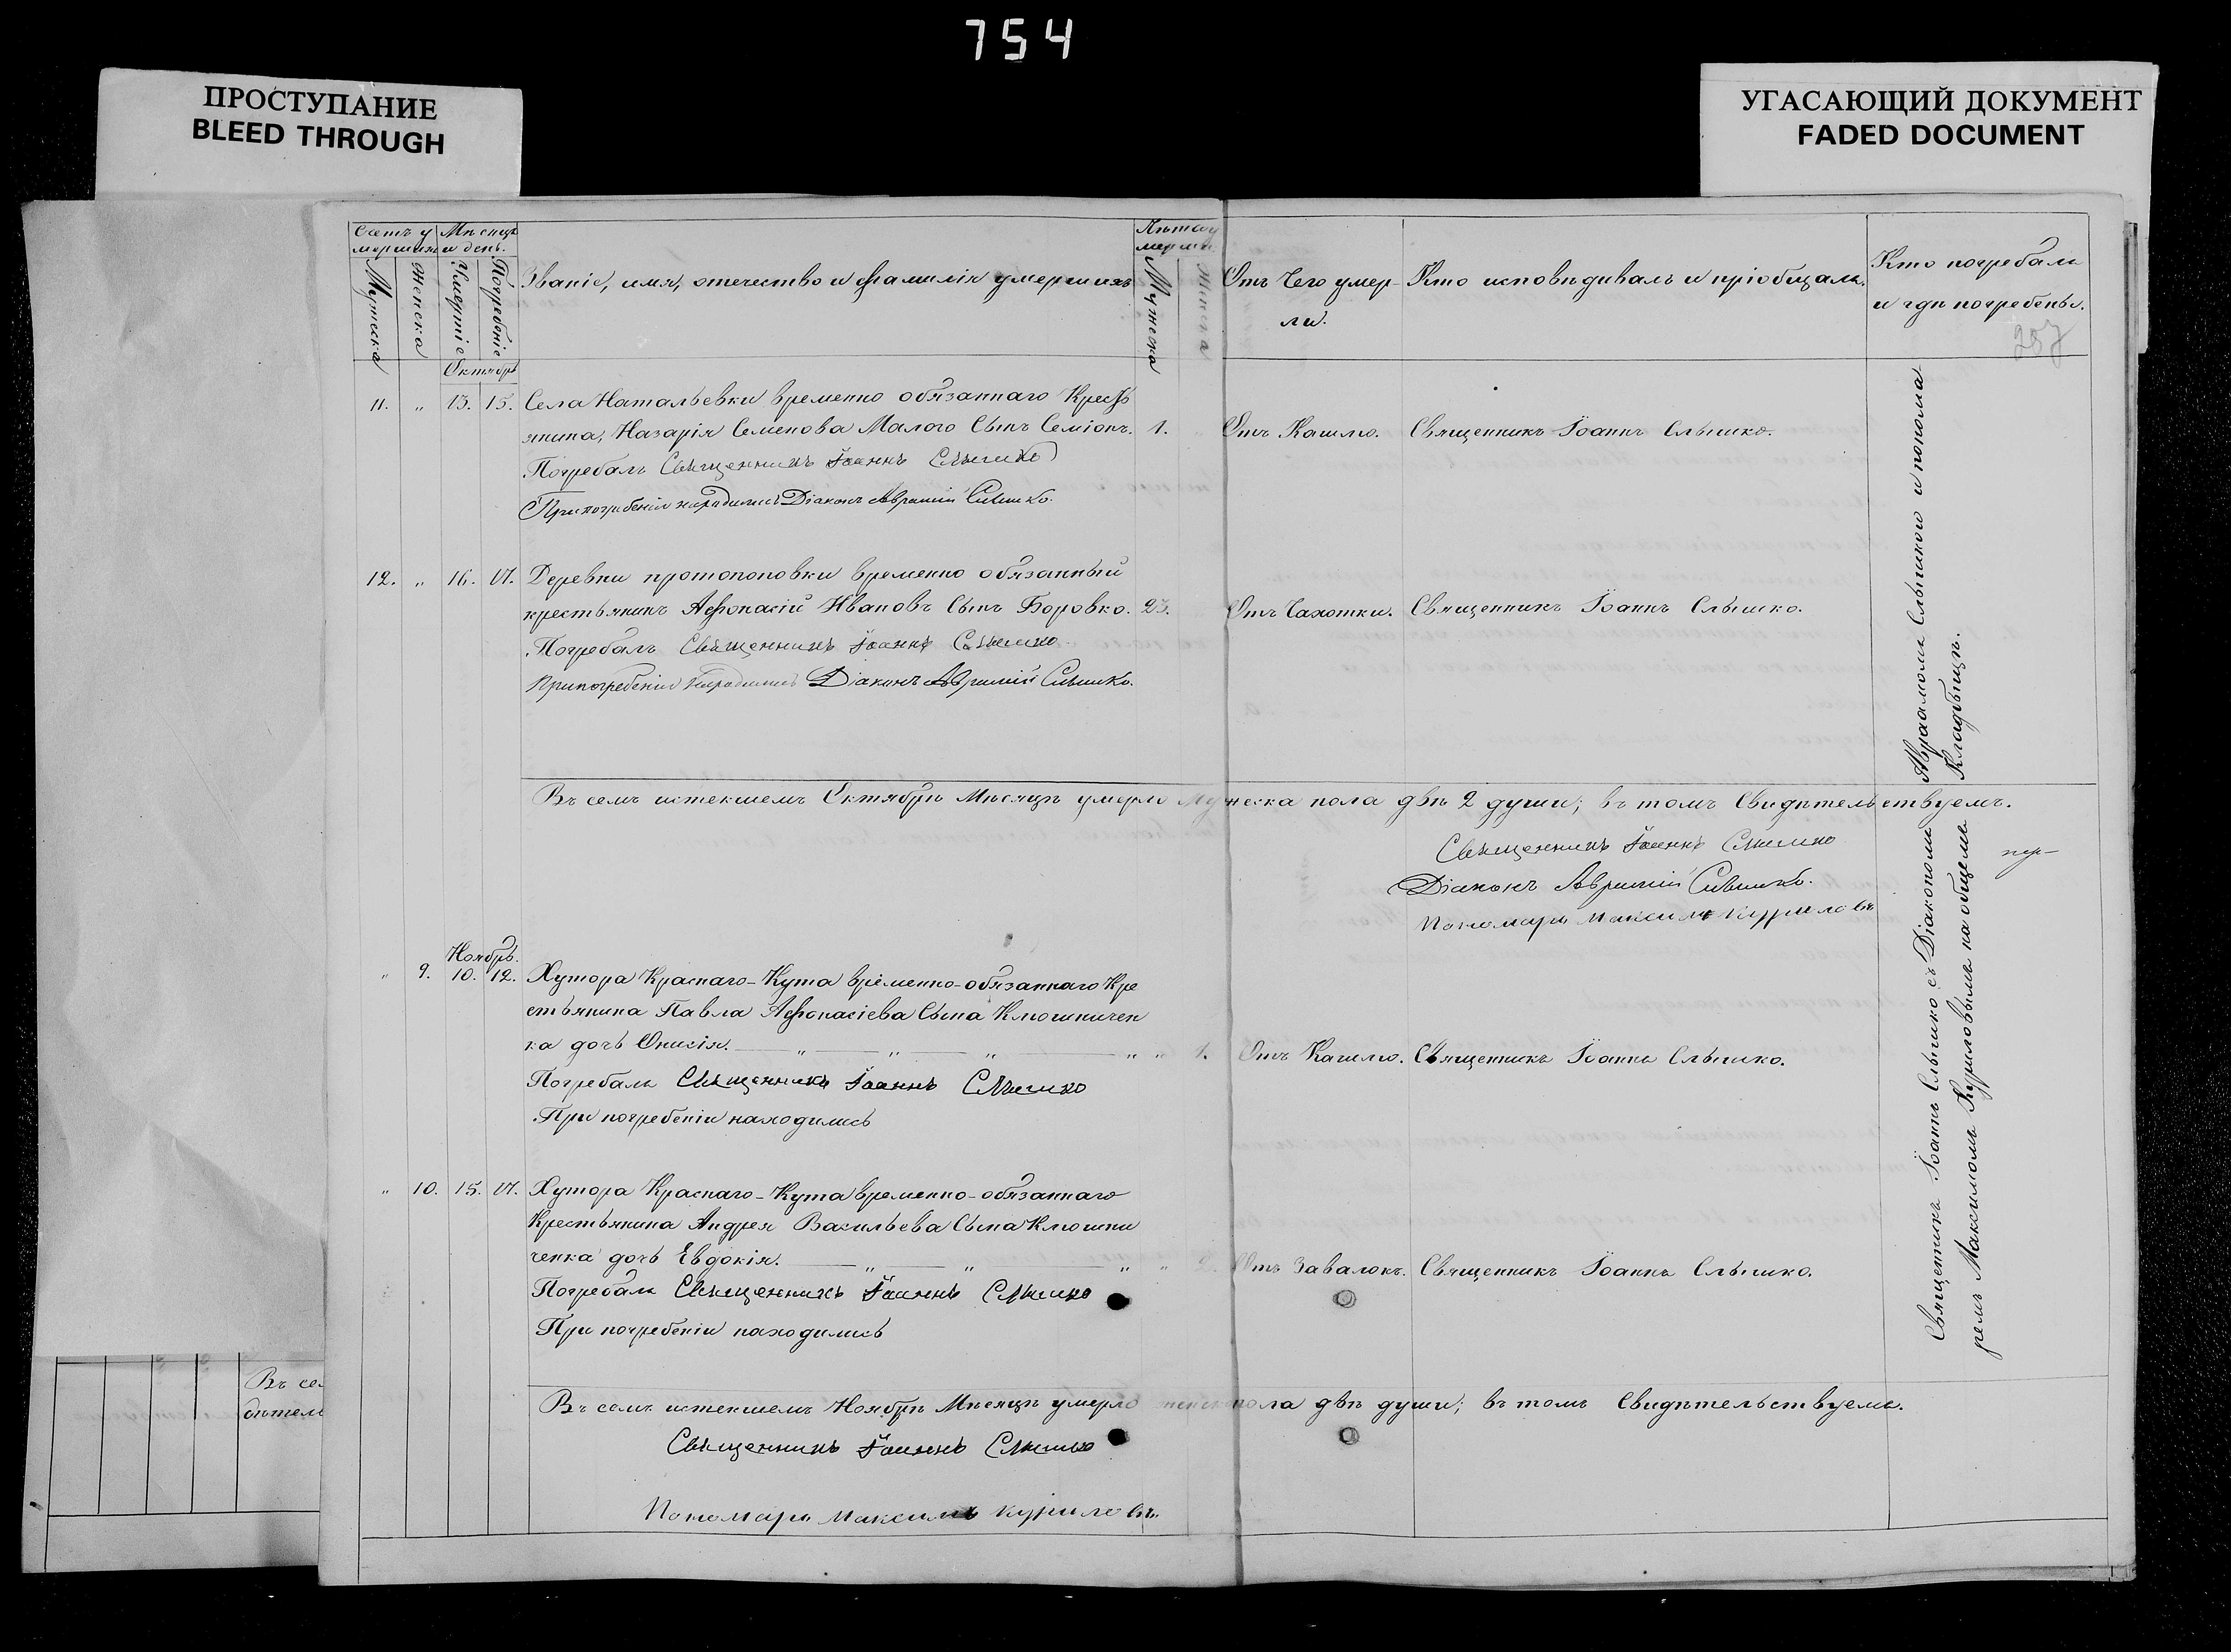 754
ПРОСТУПАНИЕ
BLEED THROUGH
УГАСАЮЩИЙ ДОКУМЕНТ
FADED DOCUMENT
Счетъ у
мершихъ
Мѣсяцъ
и день.
Мужеска
Женска
Погребеніе
Званіе, имя, отечество и фамилія умершихъ
Лѣта у
мерш
Мужеска
Женска
Отъ чего умер-
ли.
Кто исповѣдивалъ и пріобщалъ.
Кто погребалъ
и гдѣ погребены.
257
Октябрь
11. „ 13. 15. Села Натальевки временно обязаннаго Кресть
янина, Назарія Семенова Малого Сынъ Семіонъ. 1. Отъ Кашлю. Священникъ Іоаннъ Слышко.
Погребалъ Священникъ Іоаннъ Слышко
При погребеніи находились Діаконъ Аврамій Слышко.
12. „ 16. 17. Деревни протопоповки временно обязанный
крестьянинъ Афонасій Ивановъ Сынъ Боровко. 23. Отъ Чахотки. Священникъ Іоаннъ Слышко.
Погребалъ Священникъ Іоаннъ Слышко
При погребеніи находились Діаконъ Аврамій Слышко.
Въ семъ истекшемъ Октябрѣ Мѣсяцѣ умерло Мужеска пола двѣ 2 души; въ томъ Свидѣтельствуемъ.
Священникъ Іоаннъ Слышко
Діаконъ Аврамій Слышко.
Пономарь Максимъ Куриловъ
Ноябрь.
„ 9. 10. 12. Хутора Краснаго-Кута временно-обязаннаго Кре
стьянина Павла Афонасіева Сына Клюшничен
ка дочь Онисія. „ „ „ „ „ 1. Отъ Кашлю. Священникъ Іоаннъ Слышко.
Погребалъ Священникъ Іоаннъ Слышко
При погребеніи находились
„ 10. 15. 17. Хутора Краснаго-Кута временно-обязаннаго
Крестьянина Андрея Васильева Сына Клюшни
ченка дочь Евдокія. „ „ „ „ 2. Отъ Завалокъ. Священникъ Іоаннъ Слышко.
Погребалъ Священникъ Іоаннъ Слышко
При погребеніи находились
Въ семъ истекшемъ Ноябрѣ Мѣсяцѣ умерло женска пола двѣ души; въ томъ Свидѣтельствуемъ.
Священникъ Іоаннъ Слышко
Пономарь Максимъ Куриловъ.
Священникъ Іоаннъ Слышко съ Діакономъ Авраамомъ Слышкого и понома-
ремъ Максимомъ Куриловымъ на общемъ Кладбищѣ.
Въ се
дѣтель